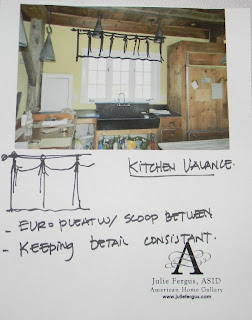 KITCHEN VALANCE.
- EURO PLEAT W/ SCOOP BETWEEN
- KEEPING DETAIL CONSISTANT.
A
Julie Fergus, ASID
American Home Gallery
www.juliefergus.com